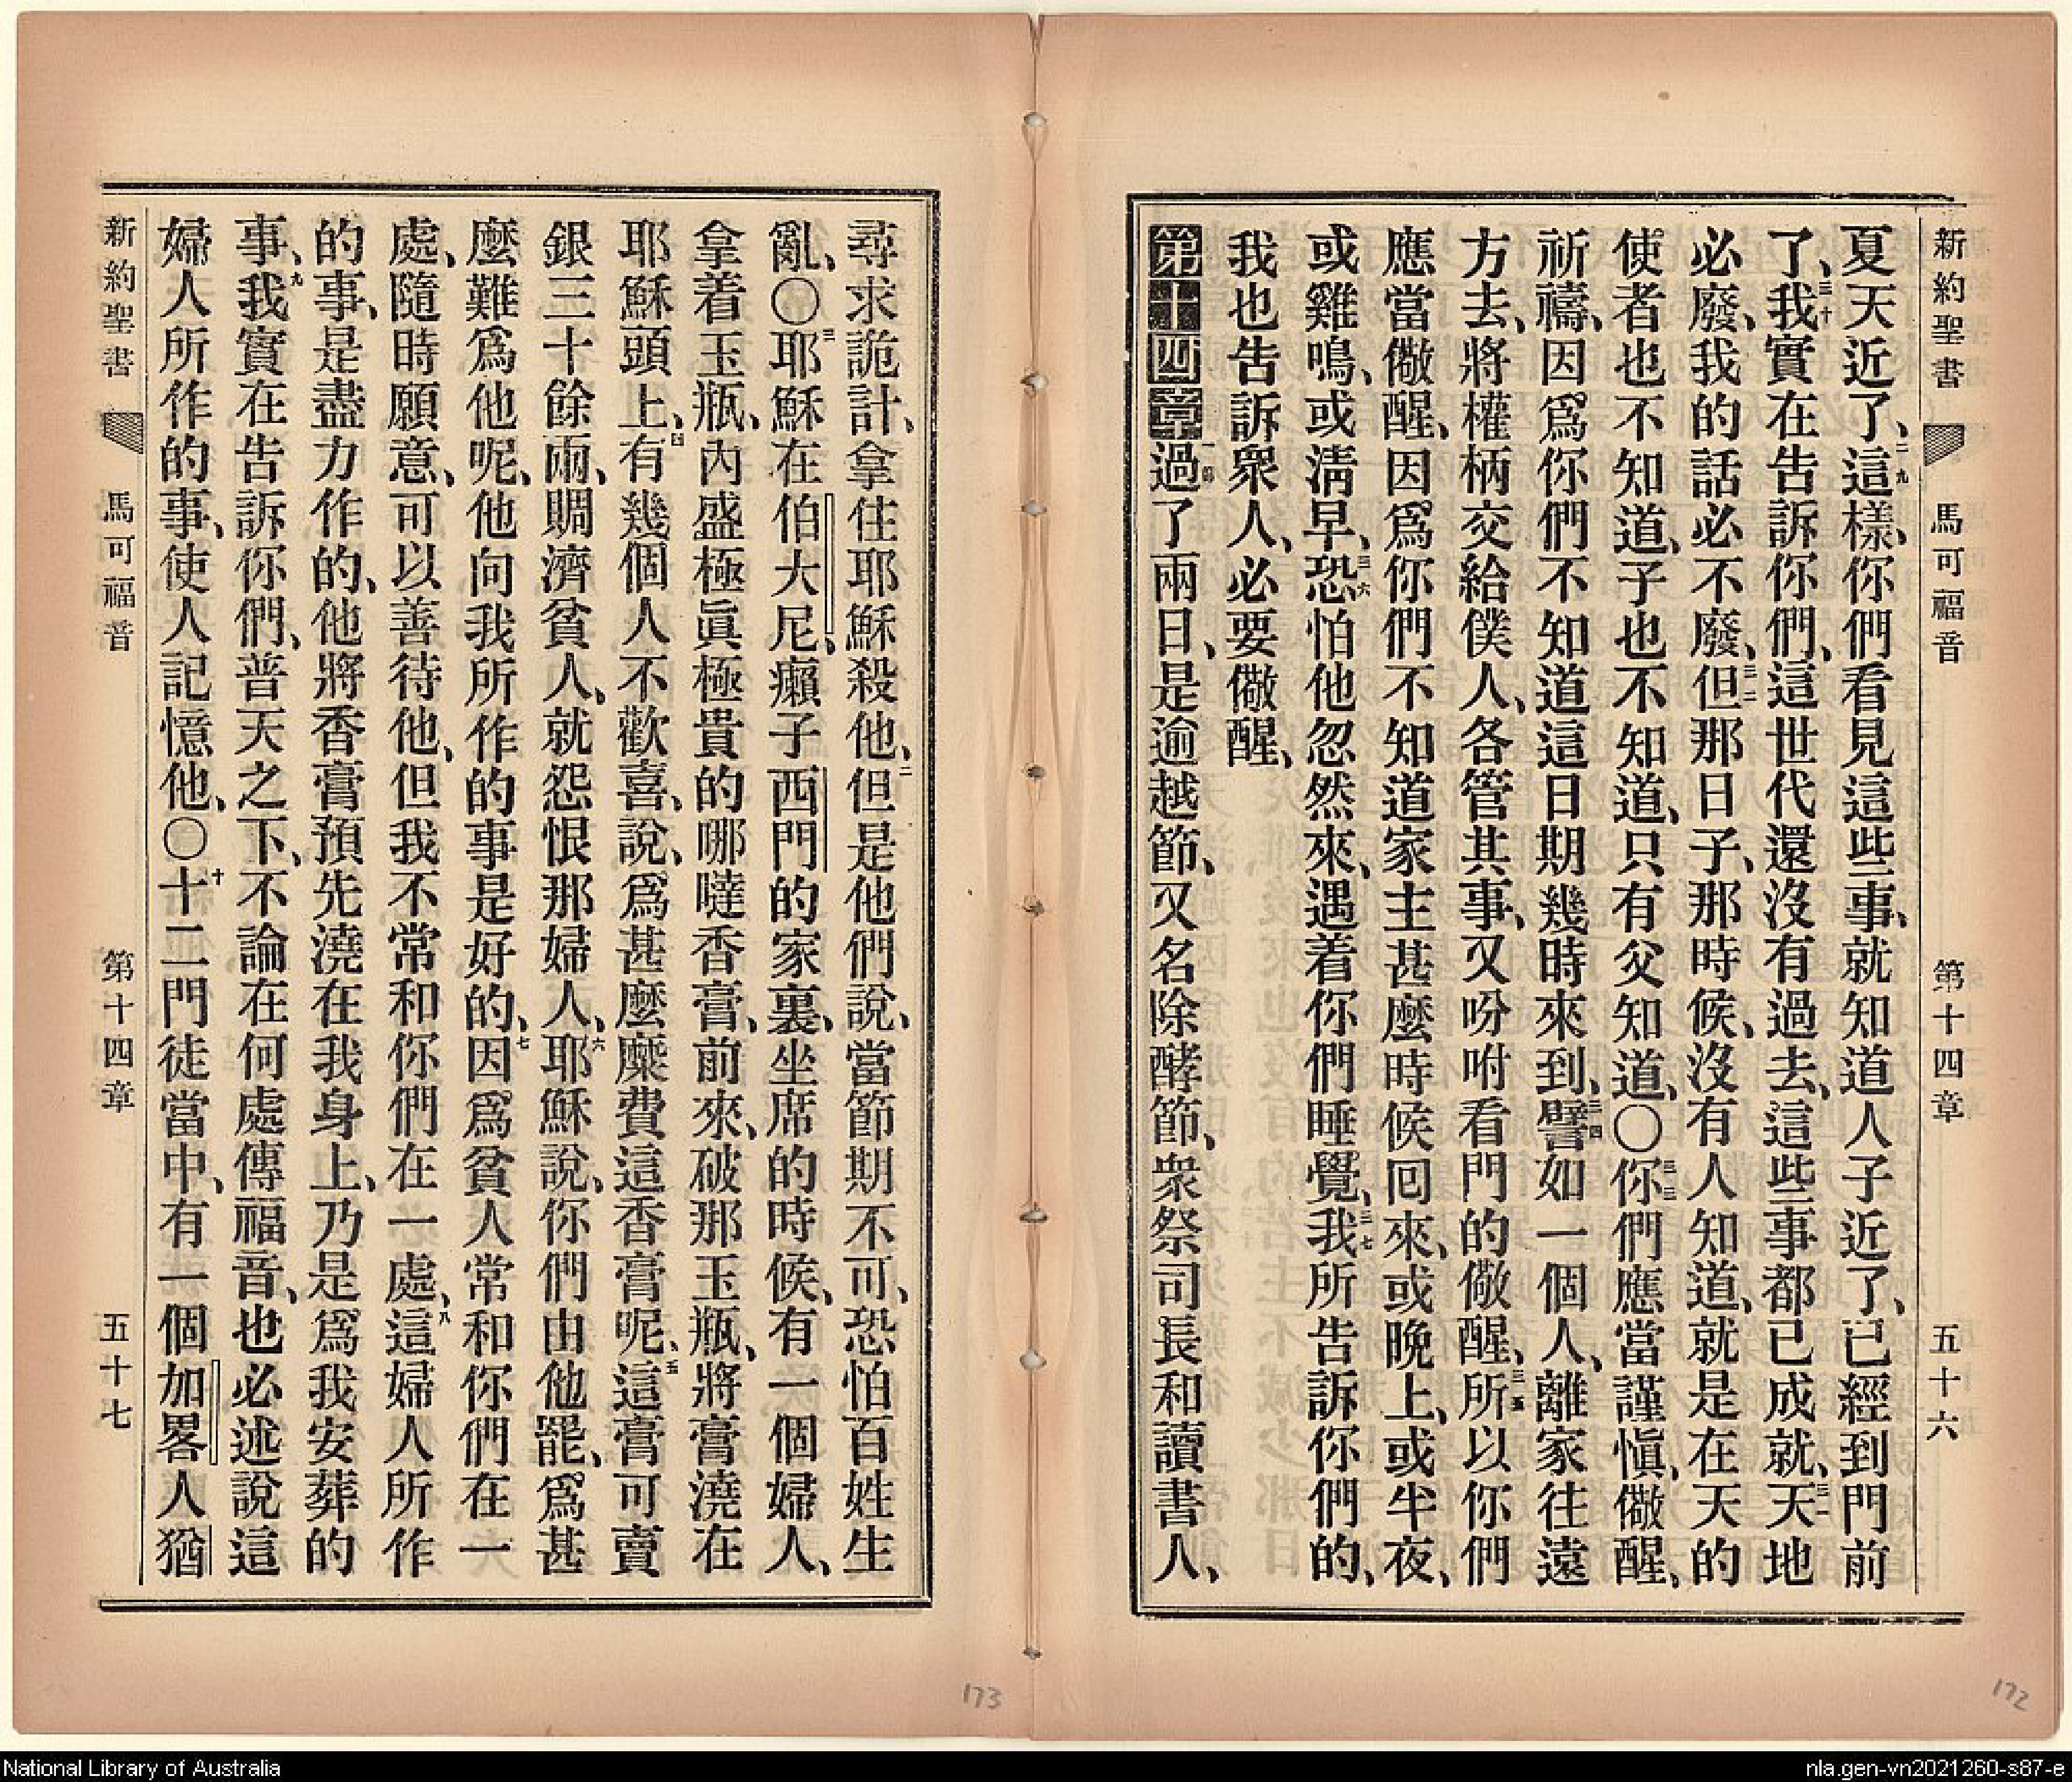 新約聖書 馬可福音 第十四章 五十六
夏天近了、二九這樣、你們看見這些事、就知道人子近了、已經到門前
了、三十我實在告訴你們、這世代還沒有過去、這些事都已成就、三一天地
必廢、我的話必不廢、三二但那日子、那時候、沒有人知道、就是在天的
使者也不知道、子也不知道、只有父知道、〇三三你們應當謹愼、儆醒、
祈禱、因爲你們不知道這日期幾時來到、三四譬如一個人、離家往遠
方去、將權柄交給僕人、各管其事、又吩咐看門的儆醒、三五所以你們
應當儆醒、因爲你們不知道家主甚麼時候囘來、或晚上、或半夜、
或雞鳴、或淸早、三六恐怕他忽然來、遇着你們睡覺、三七我所告訴你們的、
我也告訴衆人、必要儆醒、
第十四章 一節過了兩日、是逾越節、又名除酵節、衆祭司長和讀書人、
尋求詭計、拿住耶穌殺他、二但是他們說、當節期不可、恐怕百姓生
亂、〇三耶穌在伯大尼、癩子西門的家裏、坐席的時候、有一個婦人、
拿着玉瓶、內盛極眞極貴的哪噠香膏、前來、破那玉瓶、將膏澆在
耶穌頭上、四有幾個人不歡喜、說、爲甚麼糜費這香膏呢、五這膏可賣
銀三十餘兩、賙濟貧人、就怨恨那婦人、六耶穌說、你們由他罷、爲甚
麼難爲他呢、他向我所作的事是好的、七因爲貧人常和你們在一
處、隨時願意、可以善待他、但我不常和你們在一處、八這婦人所作
的事、是盡力作的、他將香膏預先澆在我身上、乃是爲我安葬的
事、九我實在告訴你們、普天之下、不論在何處傳福音、也必述說這
婦人所作的事、使人記憶他、〇十十二門徒當中、有一個加畧人猶
新約聖書 馬可福音 第十四章 五十七
173
172
National Library of Australia
nla.gen-vn2021260-s87-e